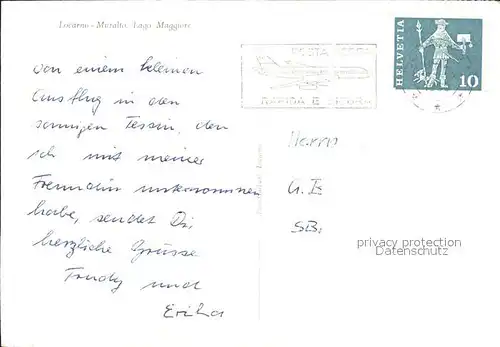 Locarno - Muralto. Lago Maggiore
POSTA AEREA
RAPIDA E SICURA
HELVETIA
10
von einem kleinen
Ausflug in den
sonnigen Tessin, den
ich mit meiner
Freundin unternommen
habe, sendet Dir
herzliche Grüsse
Trudy und
Erika
Herrn
G. E
SB:
privacy protection
Datenschutz